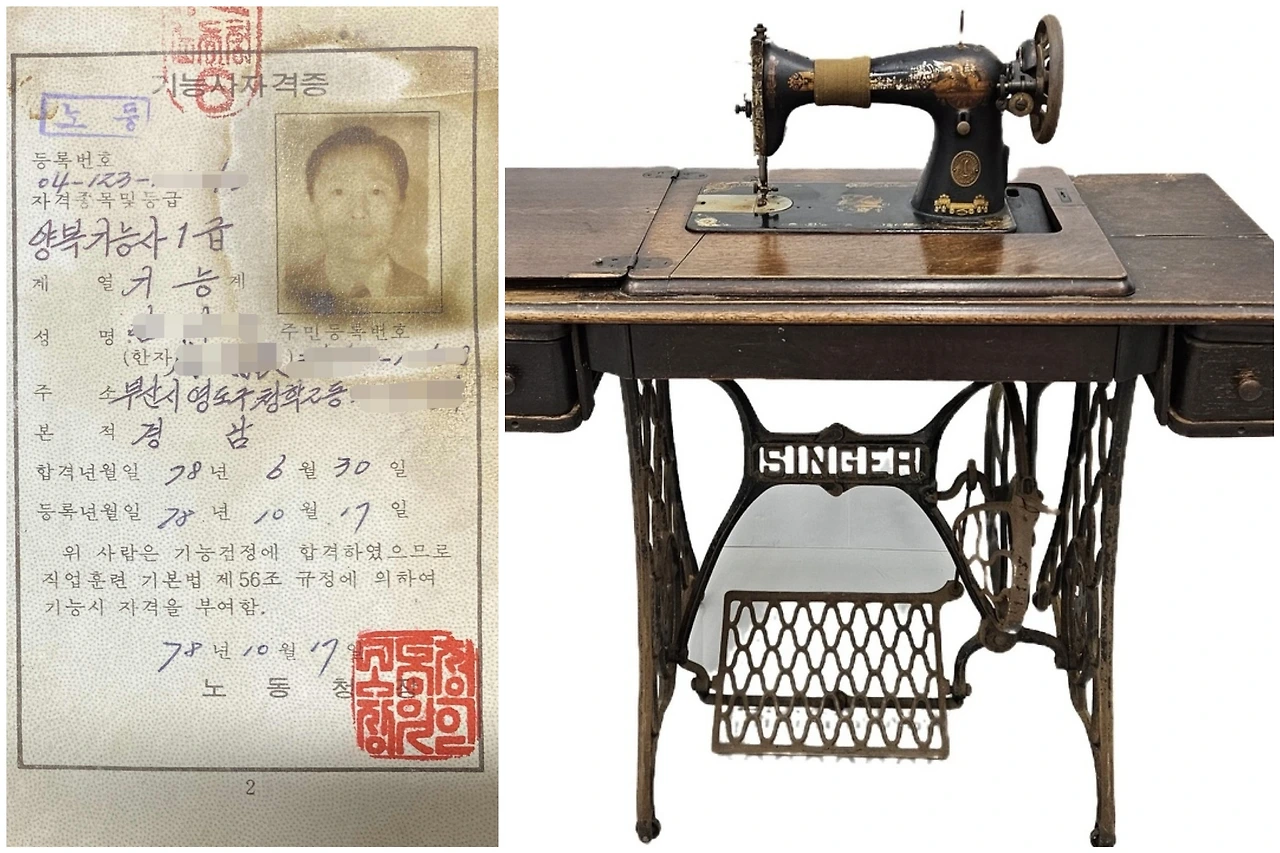 기능사자격증
노동
등록번호
04-123-
자격종목및등급
양복기능사 1급
계 열 기 능 계
성 명 주민등록번호
(한자 )
주 소 부산시 영도구 청학2동
본 적 경 남
합격년월일 78 년 6 월 30 일
등록년월일 78 년 10 월 17 일
위 사람은 기능검정에 합격하였으므로
직업훈련 기본법 제56조 규정에 의하여
기능사 자격을 부여함.
78 년 10 월 17 일
노 동 청 장
2
SINGER